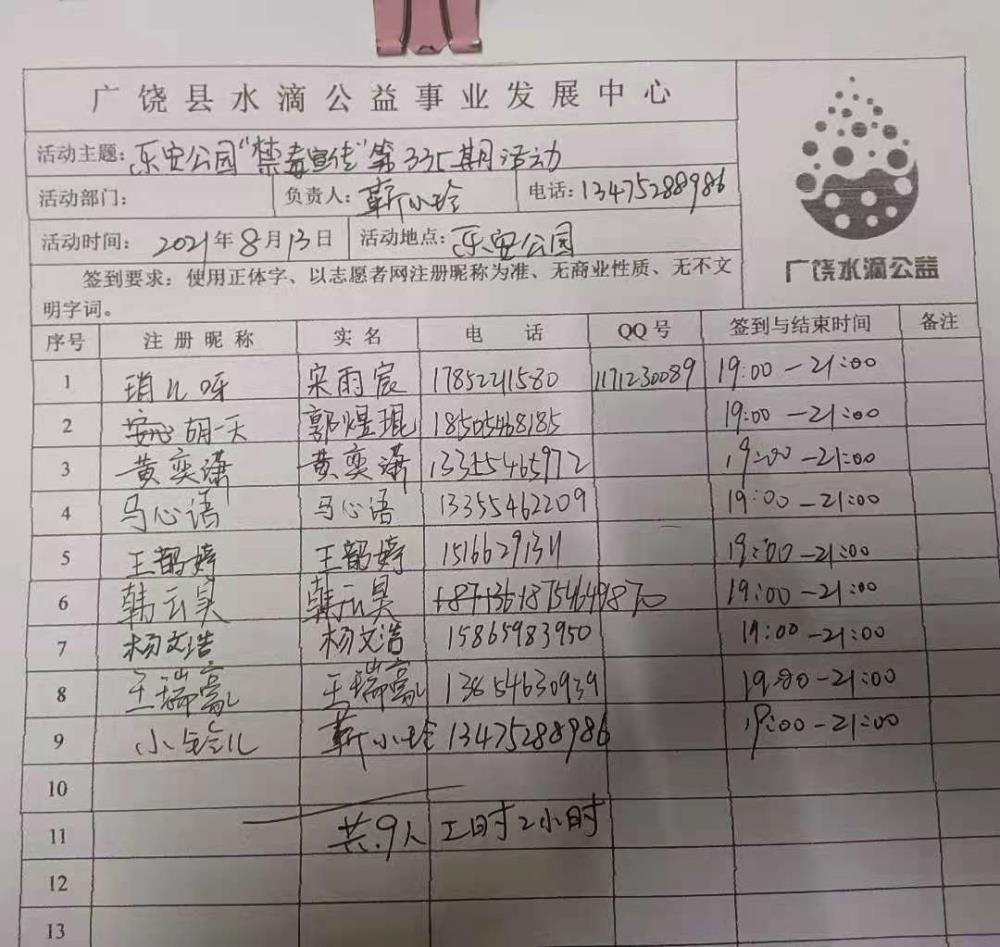 广饶县水滴公益事业发展中心
活动主题：乐安公园“禁毒宣传”第335期活动
活动部门： 负责人：靳小玲 电话：13475288986
活动时间： 2021年8月13日 活动地点：乐安公园
广饶水滴公益
签到要求：使用正体字、以志愿者网注册昵称为准、无商业性质、无不文
明字词。
序号 注册昵称 实名 电话 QQ号 签到与结束时间 备注
1 琑儿呀 宋雨宸 17852211580 1171230089 19:00－21:00
2 安心胡一天 郭煜琨 18505468185 19:00－21:00
3 黄奕潇 黄奕潇 13355465972 19:00－21:00
4 马心语 马心语 13355462209 19:00－21:00
5 王韶婷 王韶婷 19:00－21:00
6 韩云昊 韩云昊 19:00－21:00
7 杨文浩 杨文浩 15865983950 19:00－21:00
8 王瑞 王瑞 13654630939 19:00－21:00
9 小铃儿 靳小玲 13475288986 19:00－21:00
10
11 共9人 工时2小时
12
13